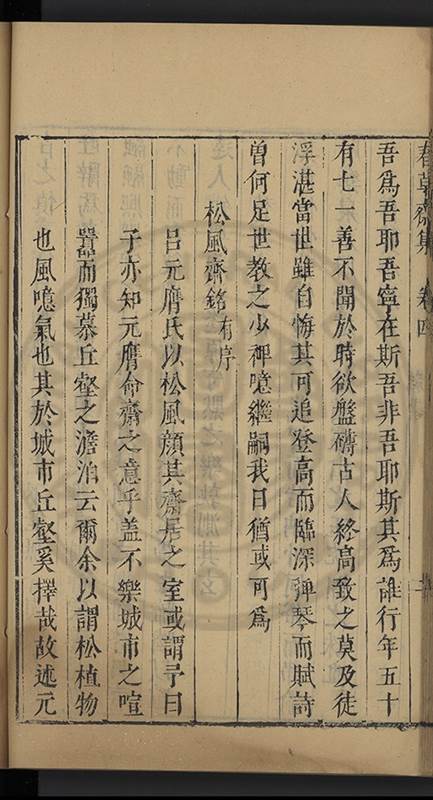 春草齋集 卷四
吾爲吾耶吾寧在斯吾非吾耶斯其爲誰行年五十
有七一善不聞於時欲盤礴古人終高致之莫及徒
浮湛當世雖自悔其可追登高而臨深彈琴而賦詩
曾何足世教之少裨噫繼嗣我日猶或可爲
松風齋銘有序
呂元膺氏以松風顏其齋居之室或謂予曰
子亦知元膺命齋之意乎蓋不樂城市之喧
囂而獨慕丘壑之澹泊云爾余以謂松植物
也風噫氣也其於城市丘壑奚擇哉故述元